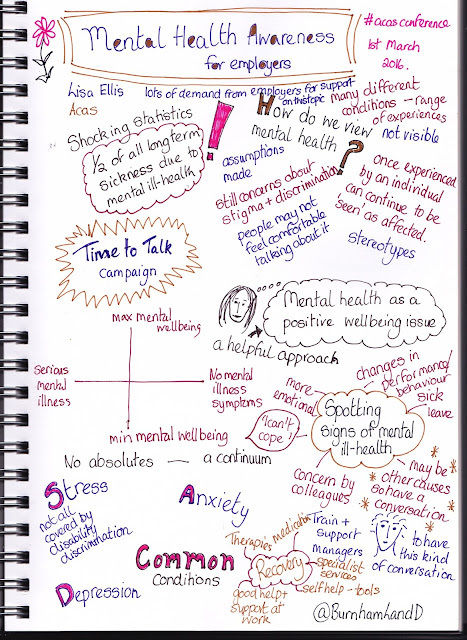 Mental Health Awareness
for employers
#acasconference
1st March
2016.
Lisa Ellis
Acas
lots of demand from employers for support
on this topic
Shocking statistics
!
1/2 of all longterm
sickness due to
mental ill-health
How do we view
mental health
?
many different
conditions - range
of experiences
not visible
assumptions
made
still concerns about
stigma + discrimination
people may not
feel comfortable
talking about it
once experienced
by an individual
can continue to be
'seen' as affected.
stereotypes
Time to Talk
campaign
Mental health as a
positive wellbeing issue
a helpful approach
max mental
wellbeing
Serious
mental
illness
No mental
illness
symptoms
min mental wellbeing
No absolutes — a continuum
Spotting
signs of mental
ill-health
more
emotional
changes in
performance/
behaviour
sick
leave
'I can't
cope'
concern by
colleagues
may be
other causes
so have a
conversation
Stress
not all
covered by
disability
discrimination
Anxiety
Depression
Common
Conditions
Recovery
Therapies
medication
Train +
support
managers
to have
this kind
of conversation.
specialist
services
selfhelp - tools
good help +
support at
work
@BurnhamLandD